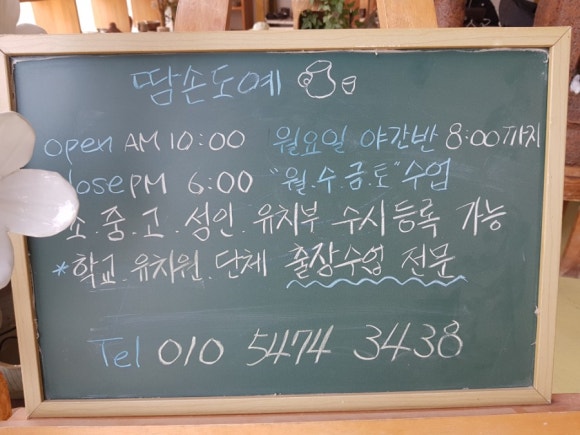 땀손도예
open AM 10:00 월요일 야간반 8:00까지
lose PM 6:00 "월.수.금.토" 수업
소.중.고.성인.유치부 수시등록 가능
*학교.유치원.단체 출장수업 전문
Tel 010 5474 3438